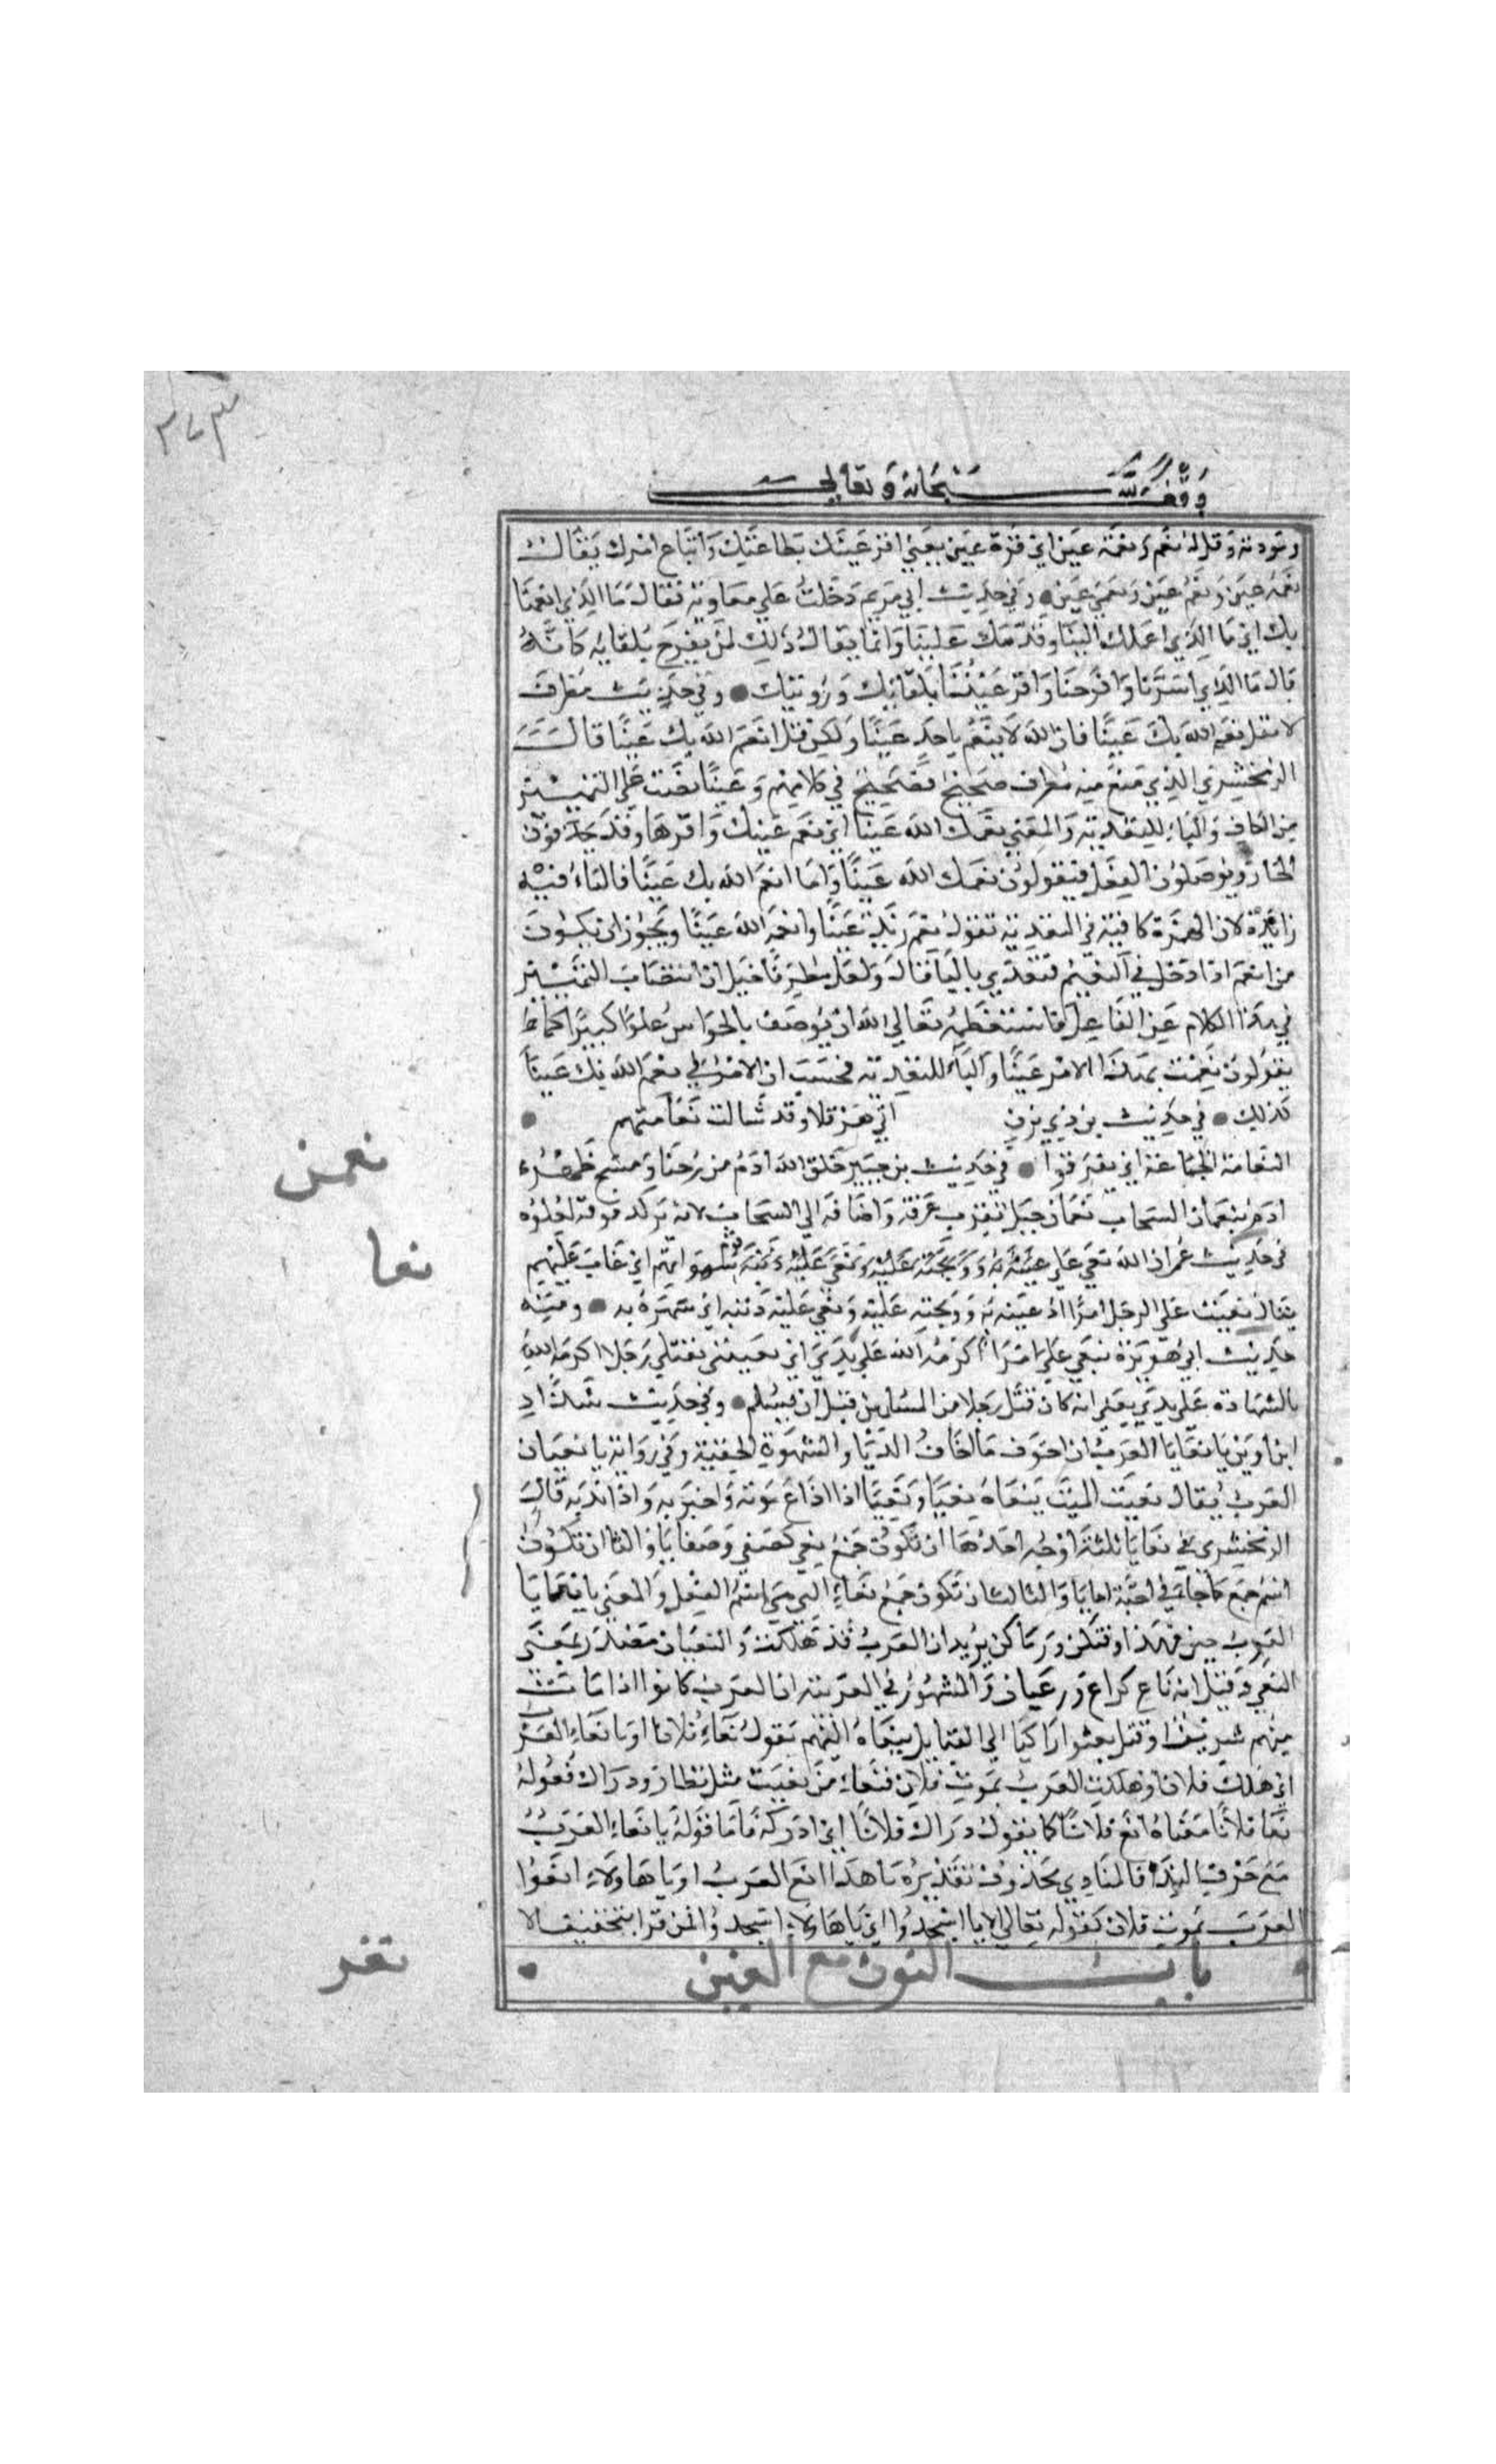 ٣٧٣
وقف لله سبحانه وتعالى
وتودته وقل له نعم ونعمة عين اي قرة عين يعني اقر عينك بطاعتك واتباع امرك يقال
نعمة عين ونعم عين ونعمى عين وفي حديث ابي مريم دخلت علي معاوية فقال ما الذي انعمنا
بك اي ما الذي اعملك الينا واقدمك علينا وانما يقال ذلك لمن يفرح بلقايه كانه
قال ما الذي اسرنا وافرحنا واقر عيننا بلقائك ورؤيتك وفي حديث مطرف
لا تقل نعم الله بك عينا فان الله لا ينعم باحد عينا ولكن قل انعم الله بك عينا قال
الزمخشري الذي منع منه مطرف صحيح فصيح في كلامهم وعينا نصب على التمييز
من الكاف والباء للتعدية والمعني نعمك الله عينا اي نعم عينك واقرها وقد يحذفون
الجار ويوصلون الفعل فيقولون نعمك الله عينا واما انعم الله بك عينا فالباء فيه
زائدة لان الهمزة كافية في التعدية تقول نعم زيد عينا وانعمه الله عينا ويجوز ان يكون
من انعم اذا دخل في النعيم فتعدي بالباء قال ولعل مطرفا خيل ان انتصاب التمييز
في هذا الكلام عن الفاعل فاستعظمه تعالي الله ان يوصف بالحواس علوا كبيرا كما
يقولون نعمت بهذا الامر عينا والباء للتعدية فحسب ان الامر في نعم الله بك عينا
كذلك في حديث بن ذي يزن اتي هرقلا وقد شالت نعامتهم
النعامة الجماعة اي تفرقوا في حديث بن جبير خلق الله ادم من دحنا ومسح ظهره
ادم بنعمان السحاب نعمان جبل بقرب عرفة واضافه الي السحاب لانه يركد فوقه لعلوه
في حديث عمر ان الله نعي علي قوم شهواتهم اي عاب عليهم
يقال نعيت علي الرجل امرا اذ عيبته به ووبخته عليه ونعي عليه ذنبه اي شهره به ومنه
حديث ابي هريرة ينعي علي امرا اكرمه الله علي يدي اي يعيبني بقتلي رجلا اكرمه الله
بالشهادة علي يدي يعني انه كان قتل رجلا من المسلمين قبل ان يسلم وفي حديث شداد
ابن اوس يا نعايا العرب ان اخوف ما اخاف الريا والشهوة الخفية وفي رواية يا نعيان
العرب يقال نعيت الميت ينعاه نعيا ونعيا اذا اذاع موته واخبر به واذا ندبه قال
الزمخشري في نعايا ثلثة اوجه احدها ان تكون جمع نعي كصفي وصفايا والثاني ان تكون
اسم جمع كما جاء في اخية اخايا والثالث ان تكون جمع نعاء التي هي اسم الفعل والمعني يا نعايا
العرب جين فهذا وقتكن وزمانكن يريد ان العرب قد هلكت والنعيان مصدر بمعني
النعي وقيل انه ناع كراع ورعيان والمشهور في العربية ان العرب كانوا اذا مات
منهم شريف او قتل بعثوا راكبا الي القبايل ينعاه اليهم يقول نعاء فلانا او يا نعاء العرب
اي هلك فلان او هلكت العرب بموت فلان فنعاء من نعيت مثل نظار ودراك فقوله
نعا فلانا معناه انع فلانا كما يقول دراك فلانا اي ادركه فاما قوله يا نعاء العرب
مع حرف النداء فالمنادي محذوف تقديره يا هذا انع العرب او يا هاولاء انعوا
العرب بموت فلان كقوله تعالي الا يا اسجدوا اي يا هاولاء اسجدوا لمن قرا بتخفيف الا
باب النون مع الغين
نعمن
نعا
نغر